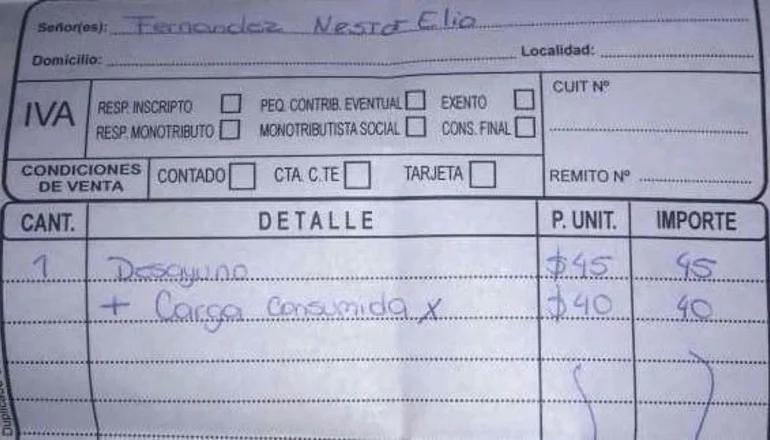 Señor(es): Fernandez Nesto Elio
Domicilio: Localidad:
IVA RESP. INSCRIPTO PEQ. CONTRIB. EVENTUAL EXENTO CUIT Nº
RESP. MONOTRIBUTO MONOTRIBUTISTA SOCIAL CONS. FINAL
CONDICIONES DE VENTA CONTADO CTA. C.TE TARJETA REMITO Nº
CANT. DETALLE P. UNIT. IMPORTE
1 Desayuno $45 45
+ Carga Consumida x $40 40
Duplicado